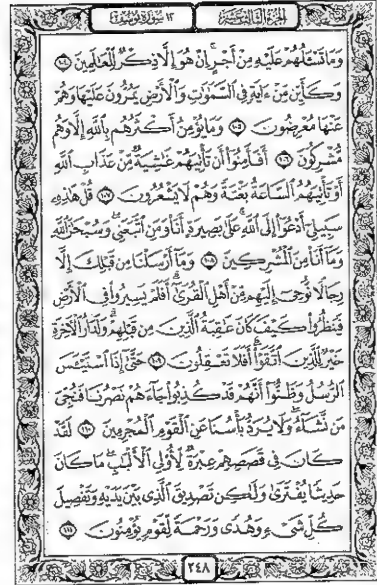 الجزء الثالث عشر ١٣ سورة يوسف
وَمَا تَسْـَٔلُهُمْ عَلَيْهِ مِنْ أَجْرٍ إِنْ هُوَ إِلَّا ذِكْرٌ لِّلْعَٰلَمِينَ ١٠٤
وَكَأَيِّن مِّنْ ءَايَةٍ فِى ٱلسَّمَٰوَٰتِ وَٱلْأَرْضِ يَمُرُّونَ عَلَيْهَا وَهُمْ
عَنْهَا مُعْرِضُونَ ١٠٥ وَمَا يُؤْمِنُ أَكْثَرُهُم بِٱللَّهِ إِلَّا وَهُم
مُّشْرِكُونَ ١٠٦ أَفَأَمِنُوٓا۟ أَن تَأْتِيَهُمْ غَٰشِيَةٌ مِّنْ عَذَابِ ٱللَّهِ
أَوْ تَأْتِيَهُمُ ٱلسَّاعَةُ بَغْتَةً وَهُمْ لَا يَشْعُرُونَ ١٠٧ قُلْ هَٰذِهِۦ
سَبِيلِىٓ أَدْعُوٓا۟ إِلَى ٱللَّهِ عَلَىٰ بَصِيرَةٍ أَنَا۠ وَمَنِ ٱتَّبَعَنِى وَسُبْحَٰنَ ٱللَّهِ
وَمَآ أَنَا۠ مِنَ ٱلْمُشْرِكِينَ ١٠٨ وَمَآ أَرْسَلْنَا مِن قَبْلِكَ إِلَّا
رِجَالًا نُّوحِىٓ إِلَيْهِم مِّنْ أَهْلِ ٱلْقُرَىٰٓ أَفَلَمْ يَسِيرُوا۟ فِى ٱلْأَرْضِ
فَيَنظُرُوا۟ كَيْفَ كَانَ عَٰقِبَةُ ٱلَّذِينَ مِن قَبْلِهِمْ وَلَدَارُ ٱلْءَاخِرَةِ
خَيْرٌ لِّلَّذِينَ ٱتَّقَوْا۟ أَفَلَا تَعْقِلُونَ ١٠٩ حَتَّىٰٓ إِذَا ٱسْتَيْـَٔسَ
ٱلرُّسُلُ وَظَنُّوٓا۟ أَنَّهُمْ قَدْ كُذِبُوا۟ جَآءَهُمْ نَصْرُنَا فَنُجِّىَ
مَن نَّشَآءُ وَلَا يُرَدُّ بَأْسُنَا عَنِ ٱلْقَوْمِ ٱلْمُجْرِمِينَ ١١٠ لَقَدْ
كَانَ فِى قَصَصِهِمْ عِبْرَةٌ لِّأُو۟لِى ٱلْأَلْبَٰبِ مَا كَانَ
حَدِيثًا يُفْتَرَىٰ وَلَٰكِن تَصْدِيقَ ٱلَّذِى بَيْنَ يَدَيْهِ وَتَفْصِيلَ
كُلِّ شَىْءٍ وَهُدًى وَرَحْمَةً لِّقَوْمٍ يُؤْمِنُونَ ١١١
٢٤٨